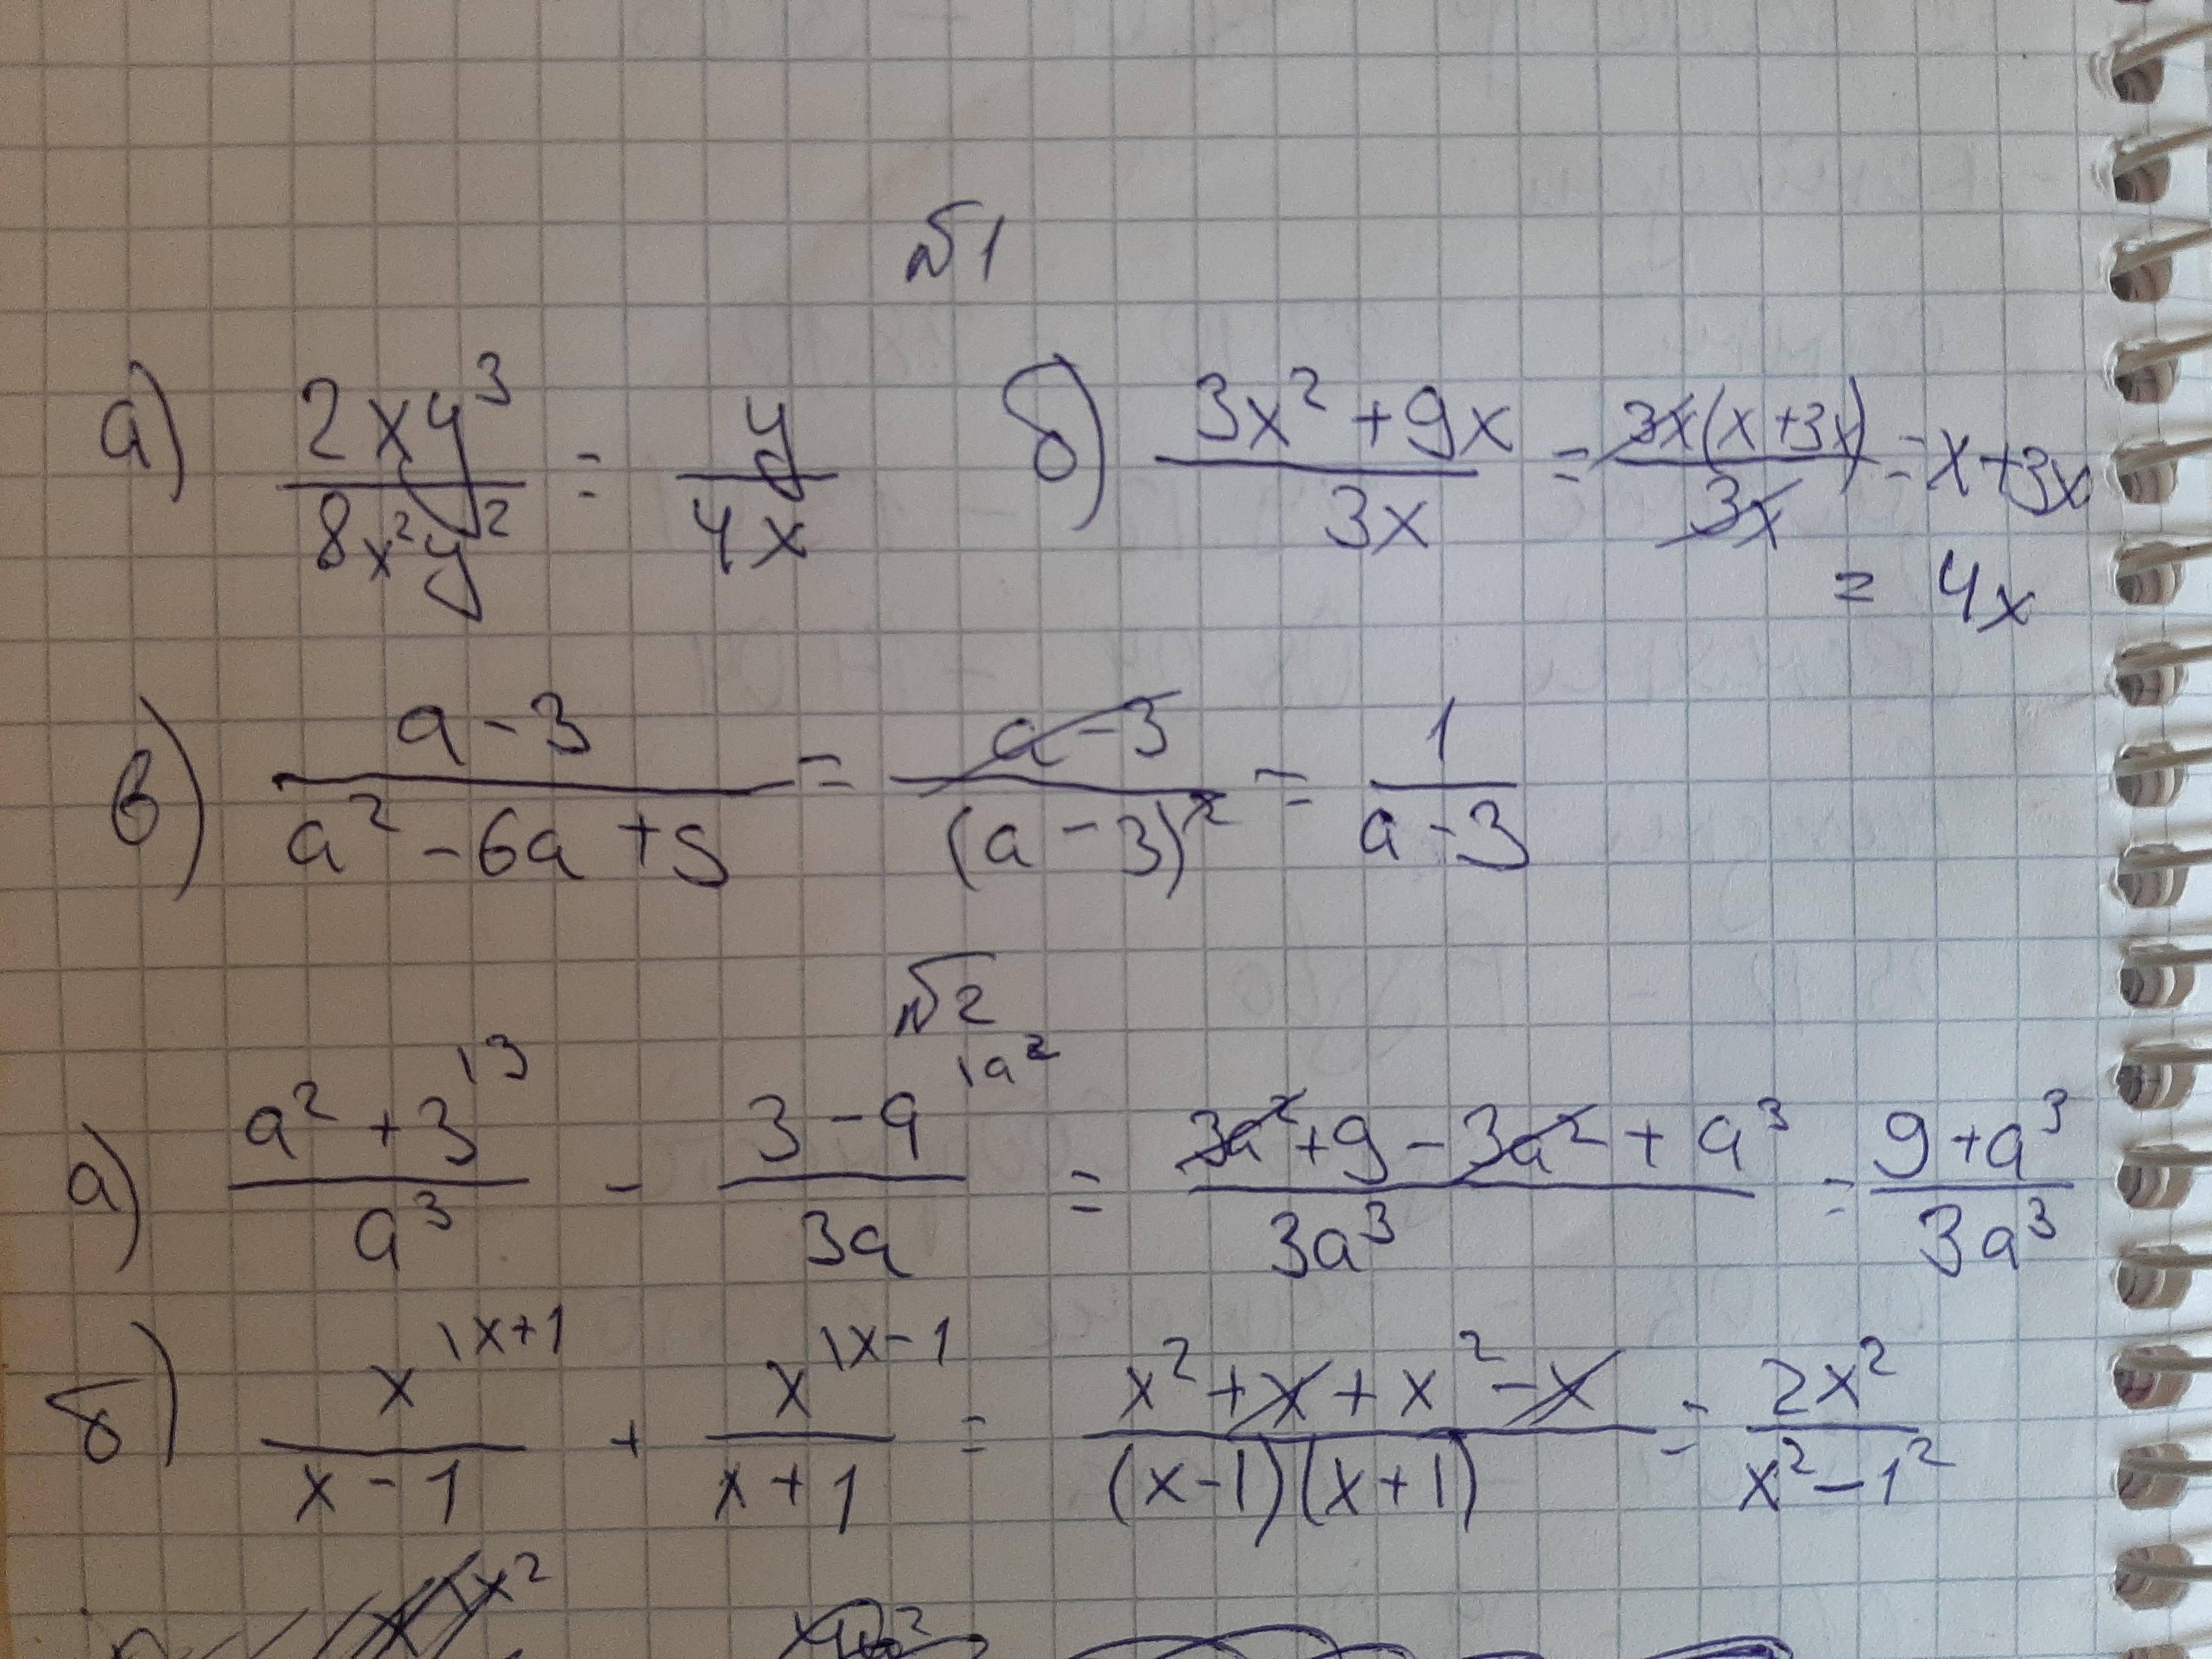 №1
а) 2xy³/8x²y² = y/4x б) 3x² + 9x/3x = 3x(x+3x)/3x = x+3x
= 4x
в) a-3/a² - 6a + 9 = a-3/(a-3)² = 1/a-3
№2
а) a² + 3 \3/a³ - 3-a \a²/3a = 3a² + 9 - 3a² + a³/3a³ = 9 + a³/3a³
б) x \x+1/x-1 + x \x-1/x+1 = x² + x + x² - x/(x-1)(x+1) = 2x²/x² - 1²